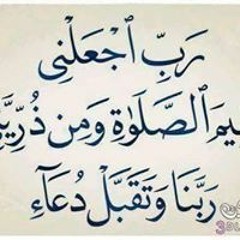 رَبِّ ٱجْعَلْنِى
قِيمَ ٱلصَّلَوٰةِ وَمِن ذُرِّيَّ
رَبَّنَا وَتَقَبَّلْ دُعَآءِ